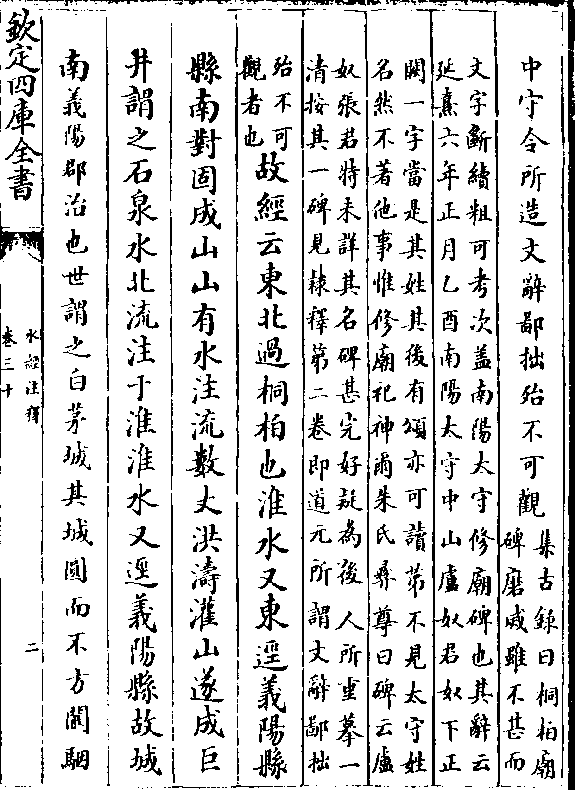 中守令所造文辭鄙拙殆不可觀集古錄曰桐柏廟
碑磨滅雖不甚而
文字斷續粗可考次蓋南陽太守修廟碑也其辭云
延熹六年正月乙酉南陽太守中山盧奴君奴下正
闕一字當是其姓其後有頌亦可讀第不見太守姓
名然不著他事惟修廟祀神爾朱氏彞尊曰碑云盧
奴張君特未詳其名碑甚完好疑為後人所重摹一
清按其一碑見隸釋第二卷即道元所謂文辭鄙拙
殆不可
觀者也故經云東北過桐柏也淮水又東逕義陽縣
縣南對固成山山有水注流數丈洪濤灌山遂成巨
井謂之石泉水北流注于淮淮水又逕義陽縣故城
南義陽郡治也世謂之白茅城其城圓而不方闞駰
欽定四庫全書
水經注釋
卷三十
二